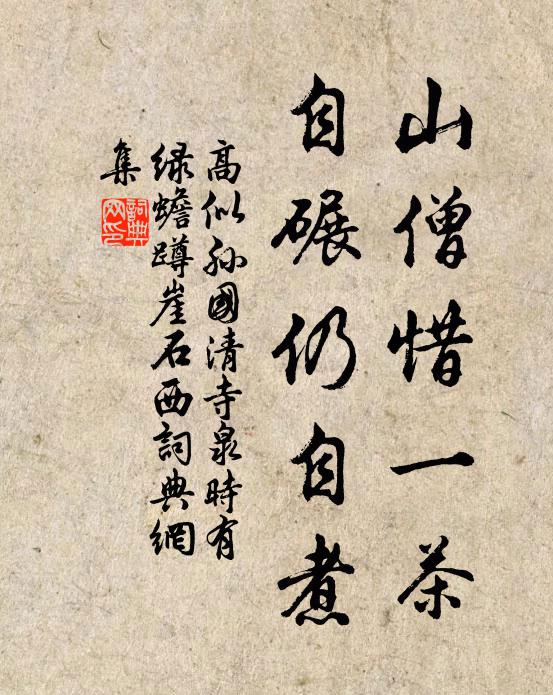 山僧惜一茶
自碾仍自煮
高似孙國清寺泉時有
绿蟾蹲崖石西詞典網
集
詞典网印